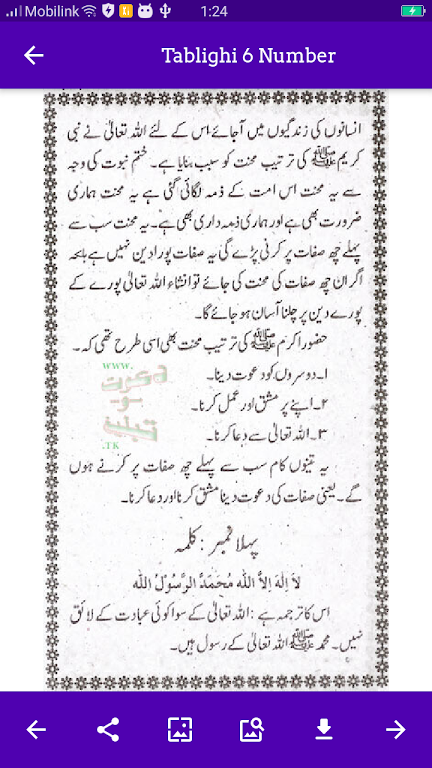 Mobilink
1:24
Tablighi 6 Number
انسانوں کی زندگیوں میں آجائے اس کے لئے اللہ تعالیٰ نے نبی
کریم ﷺ کی ترتیب محنت کو سبب بنایا ہے۔ ختم نبوت کی وجہ
سے یہ محنت اس امت کے ذمہ لگائی گئی ہے یہ محنت ہماری
ضرورت بھی ہے اور ہماری ذمہ داری بھی ہے۔ یہ محنت سب سے
پہلے چھ صفات پر کرنی پڑے گی یہ صفات پورا دین نہیں ہے بلکہ
اگر ان چھ صفات کی محنت کی جائے تو انشاء اللہ تعالیٰ پورے کے
پورے دین پر چلنا آسان ہو جائے گا۔
حضور اکرم ﷺ کی ترتیب محنت بھی اسی طرح تھی کہ۔
۱۔ دوسروں کو دعوت دینا۔
۲۔ اپنے پر مشق اور عمل کرنا۔
۳۔ اللہ تعالیٰ سے دعا کرنا۔
WWW.
دعوت
و
تبلیغ
.TK
یہ تینوں کام سب سے پہلے چھ صفات پر کرنے ہوں
گے۔ یعنی صفات کی دعوت دینا مشق کرنا اور دعا کرنا۔
پہلا نمبر : کلمہ
لَا اِلٰهَ اِلاَّ اللّٰه مُحَمَدٌ الرَّسُوْلُ اللّٰه
اس کا ترجمہ ہے : اللہ تعالیٰ کے سوا کوئی عبادت کے لائق
نہیں۔ محمد ﷺ اللہ تعالیٰ کے رسول ہیں۔